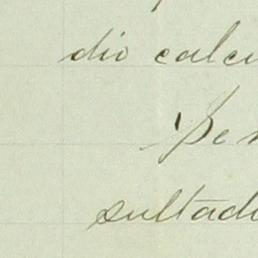 dio calcu
Ben
sultado